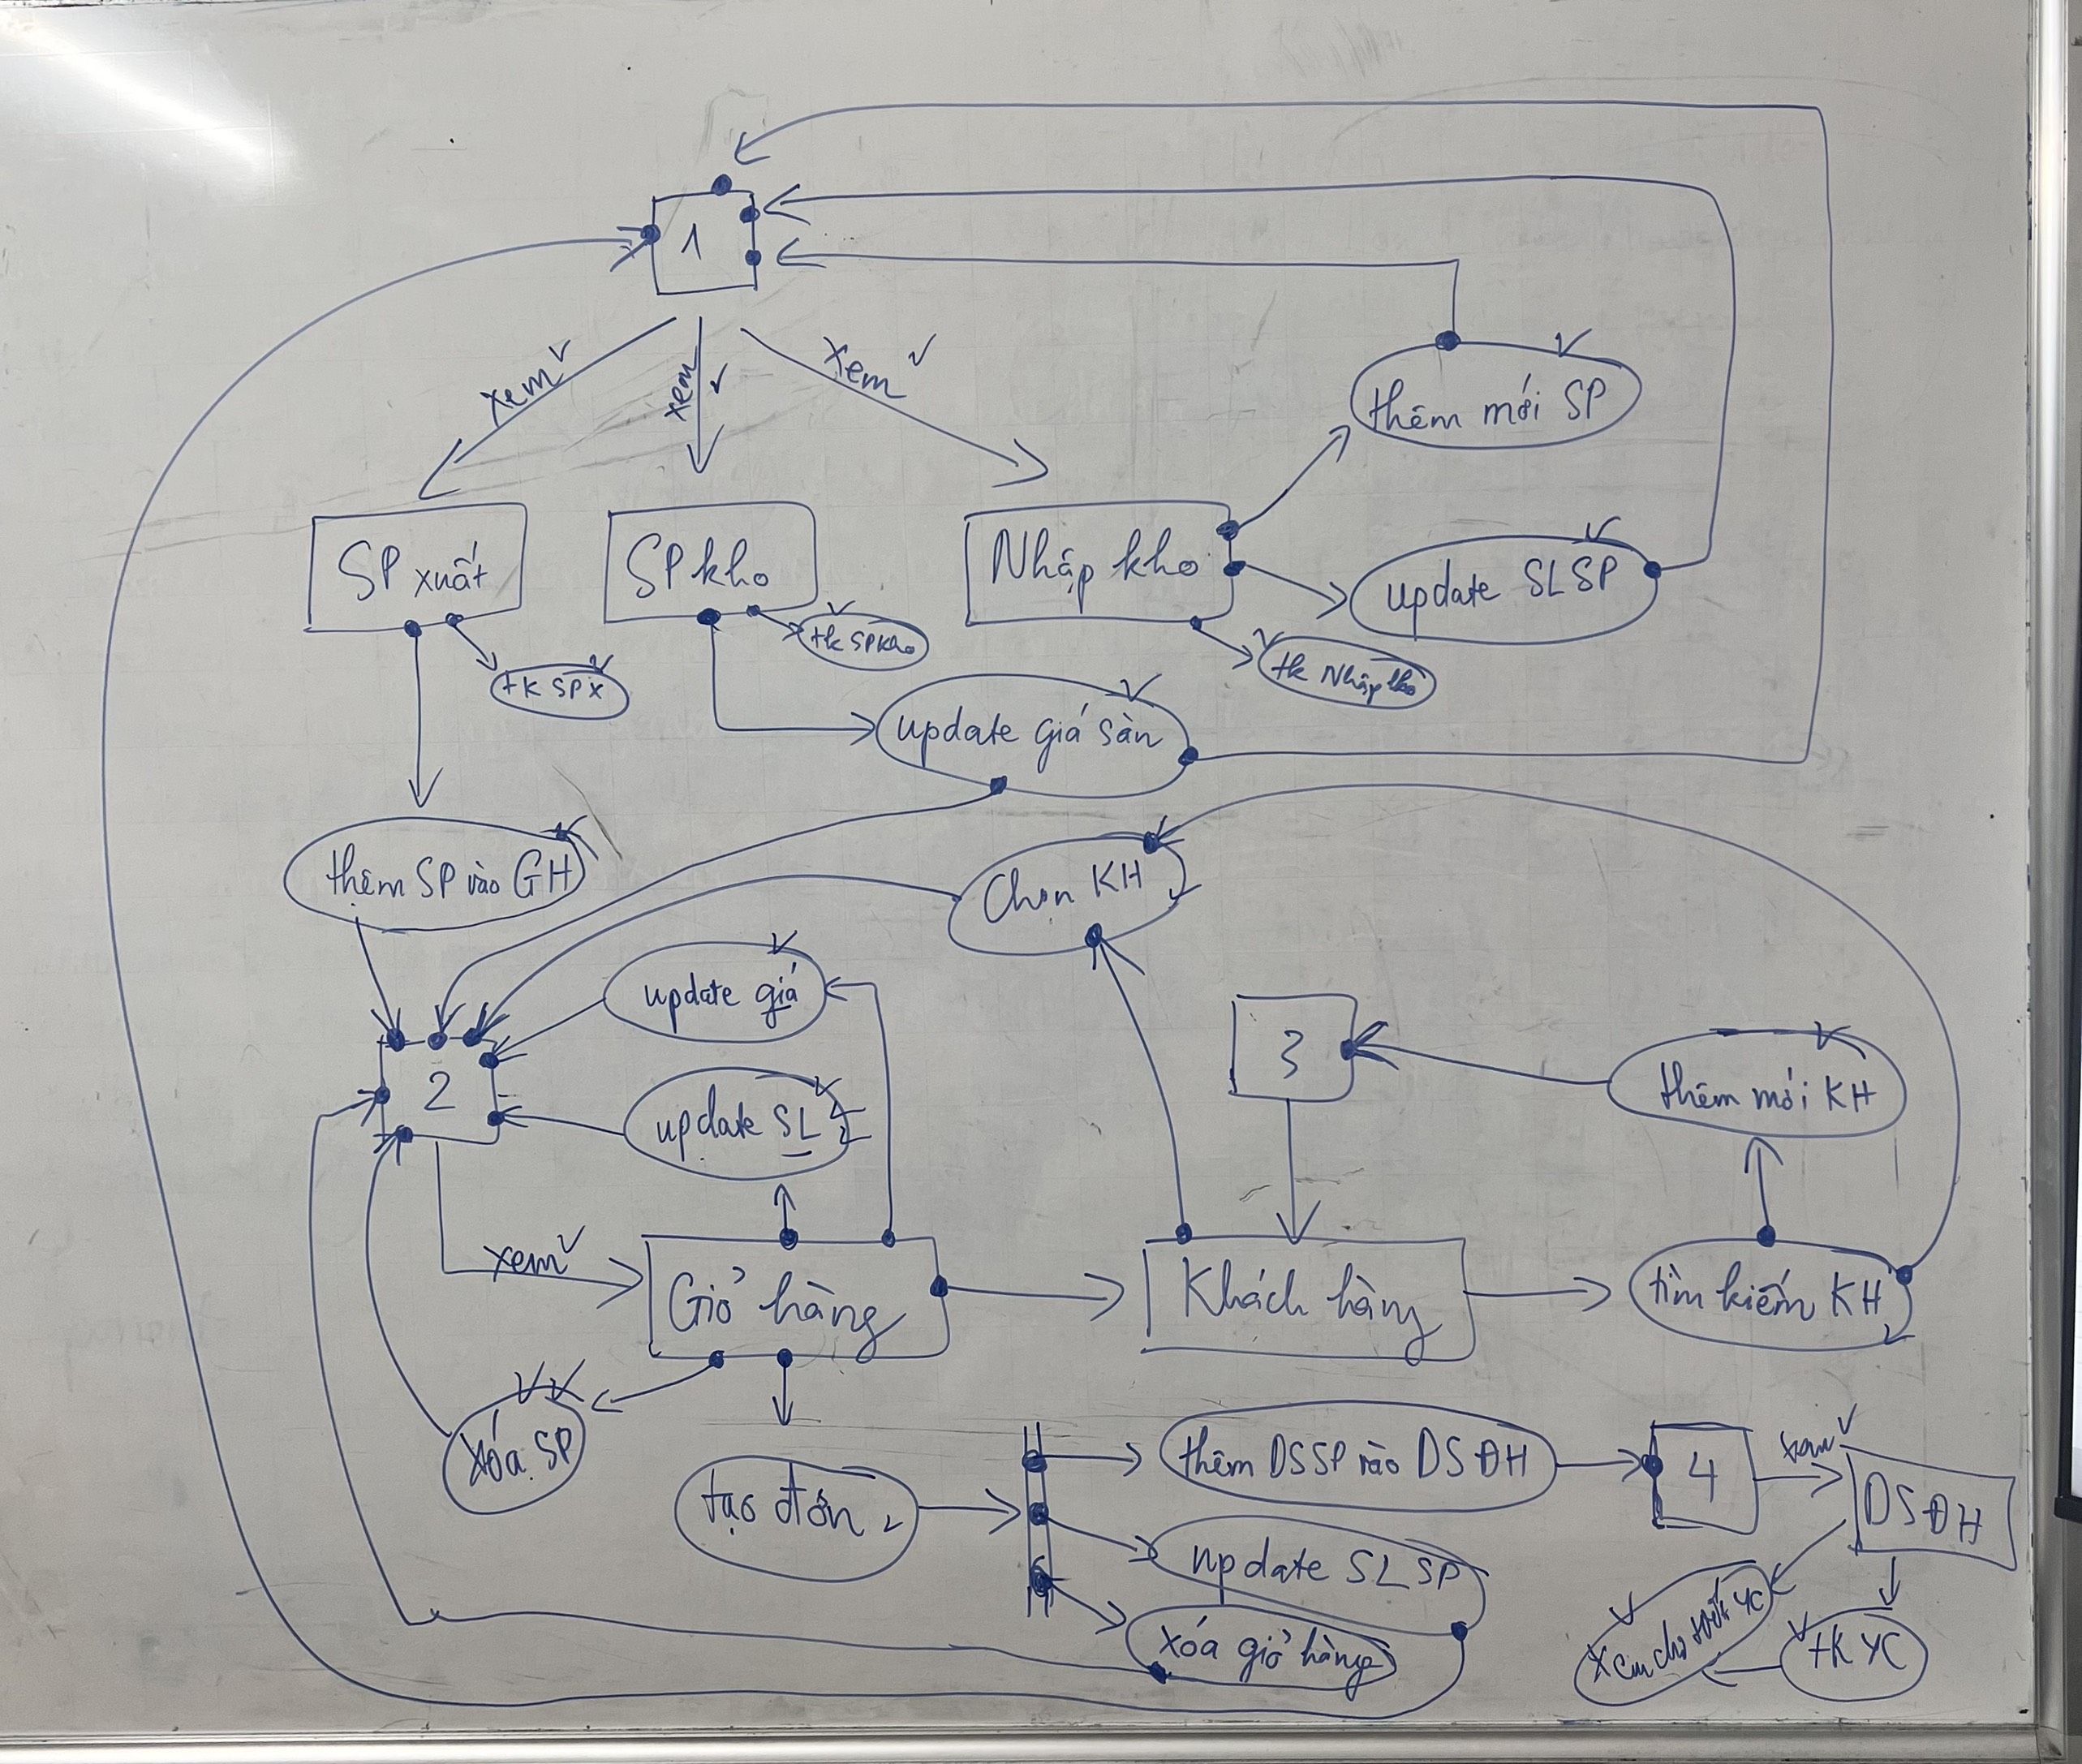 1
xem
xem
xem
thêm mới SP
SP xuất
SP kho
Nhập kho
update SLSP
tk SPX
tk SPkho
tk Nhập kho
update giá sàn
thêm SP vào GH
Chọn KH
update giá
2
update SL
3
thêm mới KH
xem
Giỏ hàng
Khách hàng
tìm kiếm KH
Xóa SP
tạo đơn
thêm DSSP vào DSĐH
4
xem
DSĐH
update SLSP
xóa giỏ hàng
xem chi tiết YC
tk YC